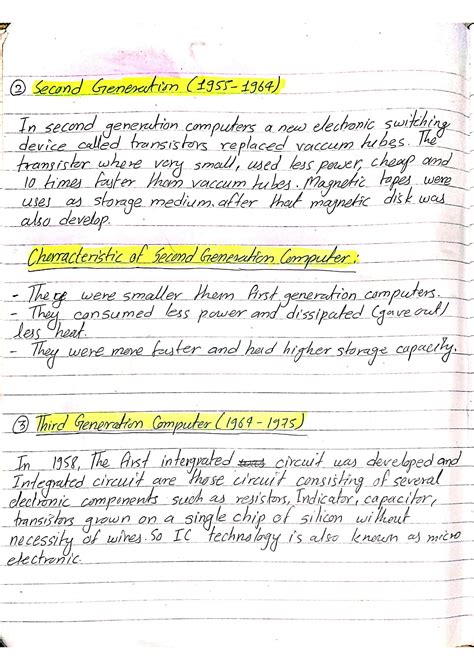 ② Second Generation (1955-1964)
In second generation computers a new electronic switching
device called transistors replaced vaccum tubes. The
transistor where very small, used less power, cheap and
10 times faster tham vaccum tubes. Magnetic tapes were
uses as storage medium. after that magnetic disk was
also develop.
Charracteristic of Second Generation Computer:
- There were smaller them first generation computers.
- They consumed less power and dissipated (gave out)
less heat.
- They were more faster and had higher storage capacity.
③ Third Generation Computer (1964-1975)
In 1958, The first intergrated circuit was developed and
Integrated circuit are those circuit consisting of several
electronic components such as resistors, Indicator, capacitor,
transistors grown on a single chip of silicon without
necessity of wires. So IC technology is also known as micro
electronic.